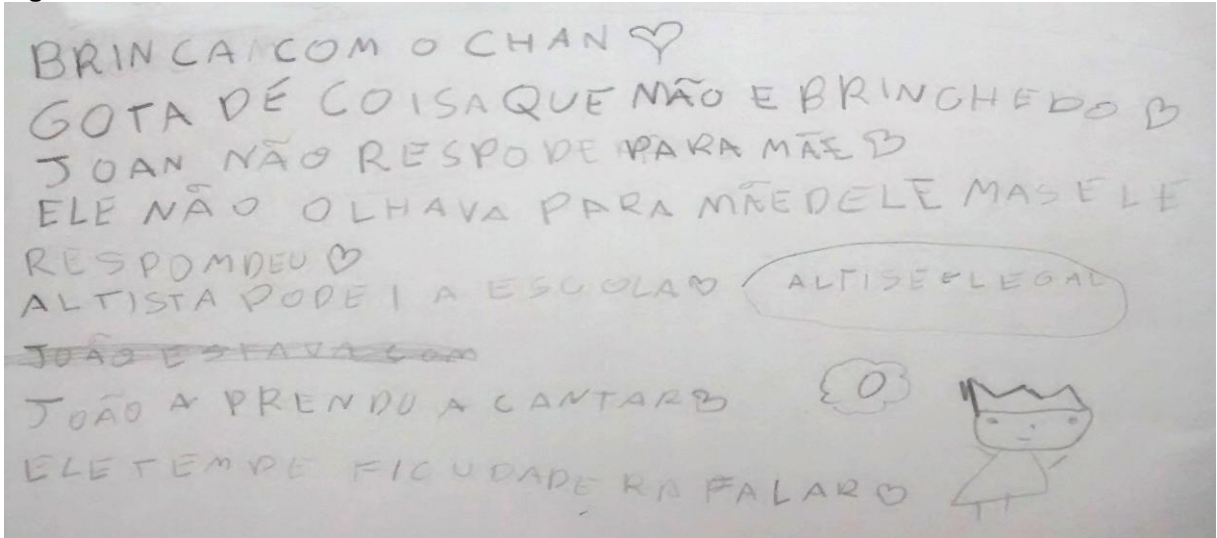 BRINCA COM O CHAN
GOTA DE COISA QUE NÃO E BRINCHEDO
JOAN NÃO RESPODE PARA MÃE
ELE NÃO OLHAVA PARA MÃE DELE MAS ELE
RESPOMDEU
ALTISTA PODE I A ESCOLA
ALTISE E LEGAL
JOÃO ESTAVA COM
JOÃO A PRENDU A CANTAR
ELE TEM DE FICUDADE RA FALAR